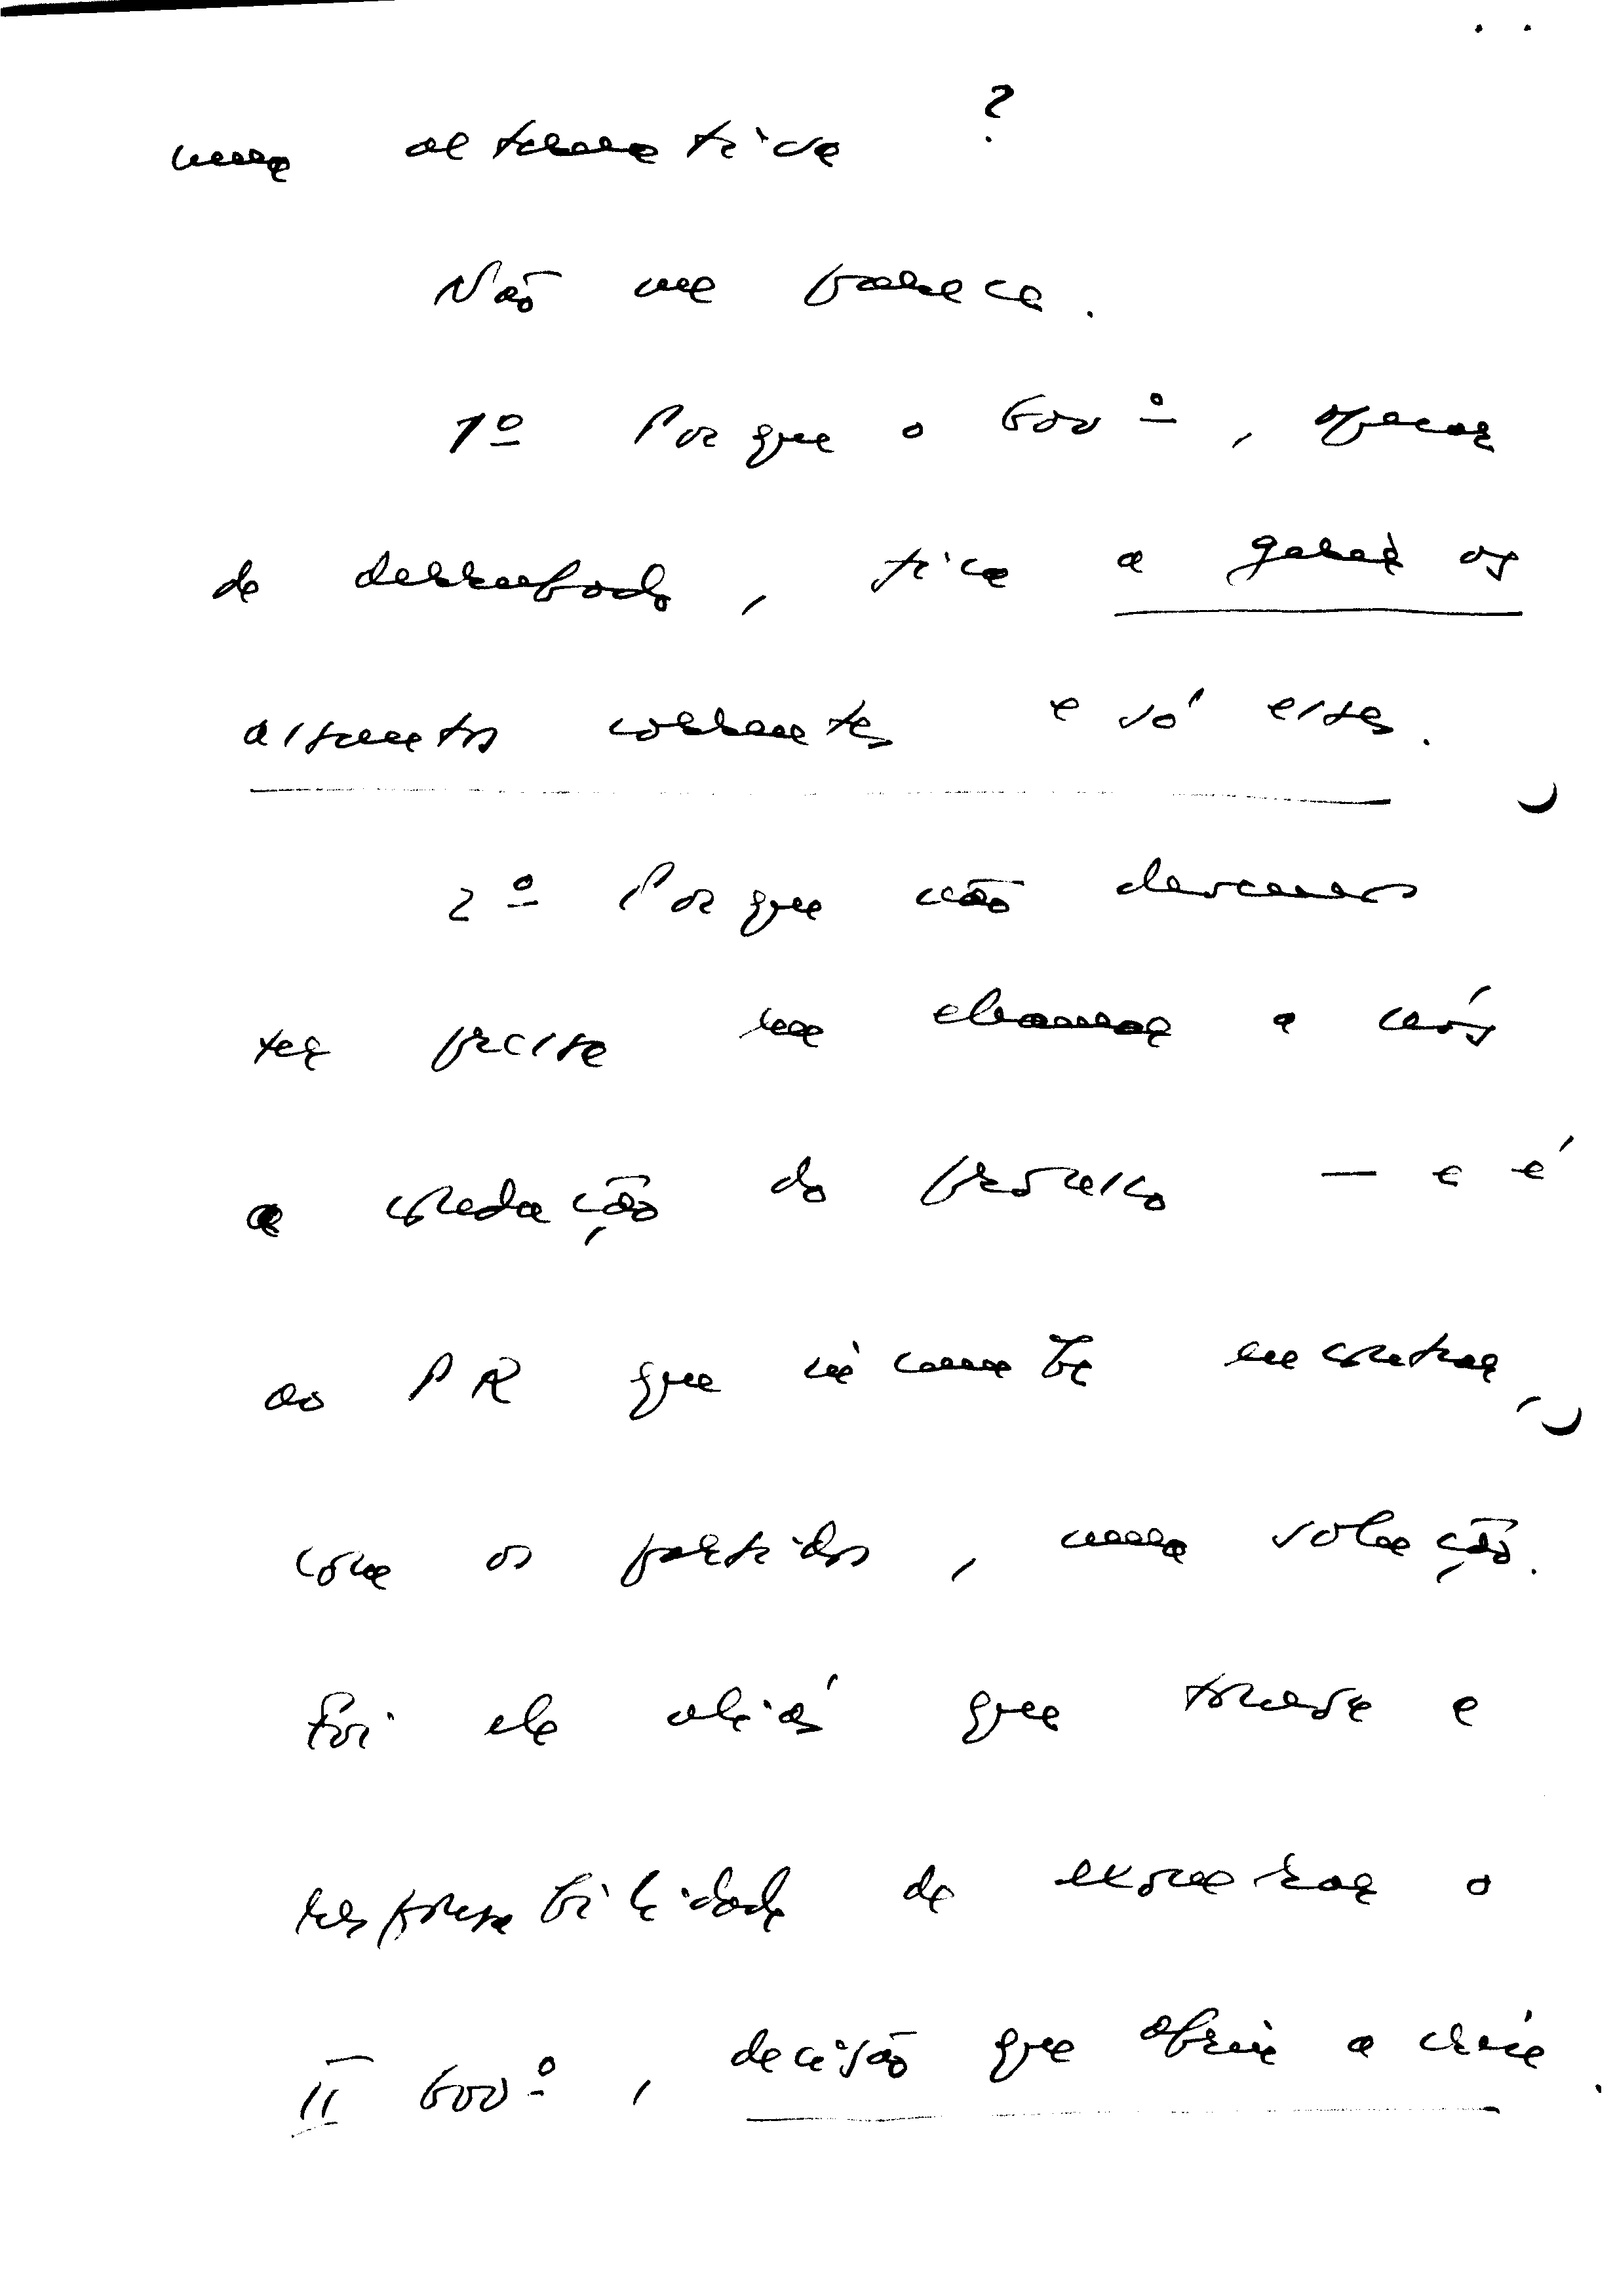 uma alternativa ?
Não me parece.
1º Porque o Govº, apesar
de derrubado, fica a gerir os
assuntos correntes e só esses.
2º Porque não devemos
ter pressa em chamar a nós
a condução do processo — e é
ao PR que incumbe encontrar,
com os partidos, uma solução.
Foi ele aliás que tomou a
responsabilidade de exonerar o
II Govº, decisão que abriu a crise.